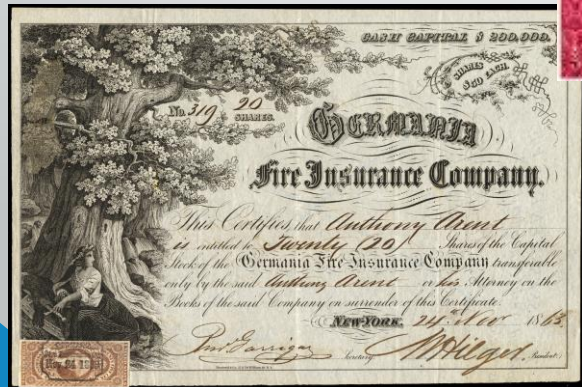 CASH CAPITAL $ 200,000.
SHARES
$50 EACH.
No. 319 20
SHARES.
GERMANIA
Fire Insurance Company.
This Certifies, that Anthony Arent
is entitled to Twenty (20) Shares of the Capital
Stock of the Germania Fire Insurance Company transferable
only by the said Anthony Arent or his Attorney on the
Books of the said Company on surrender of this Certificate.
NEW-YORK, 24th Nov 1863.
Secretary. President.
Nov 24 1863